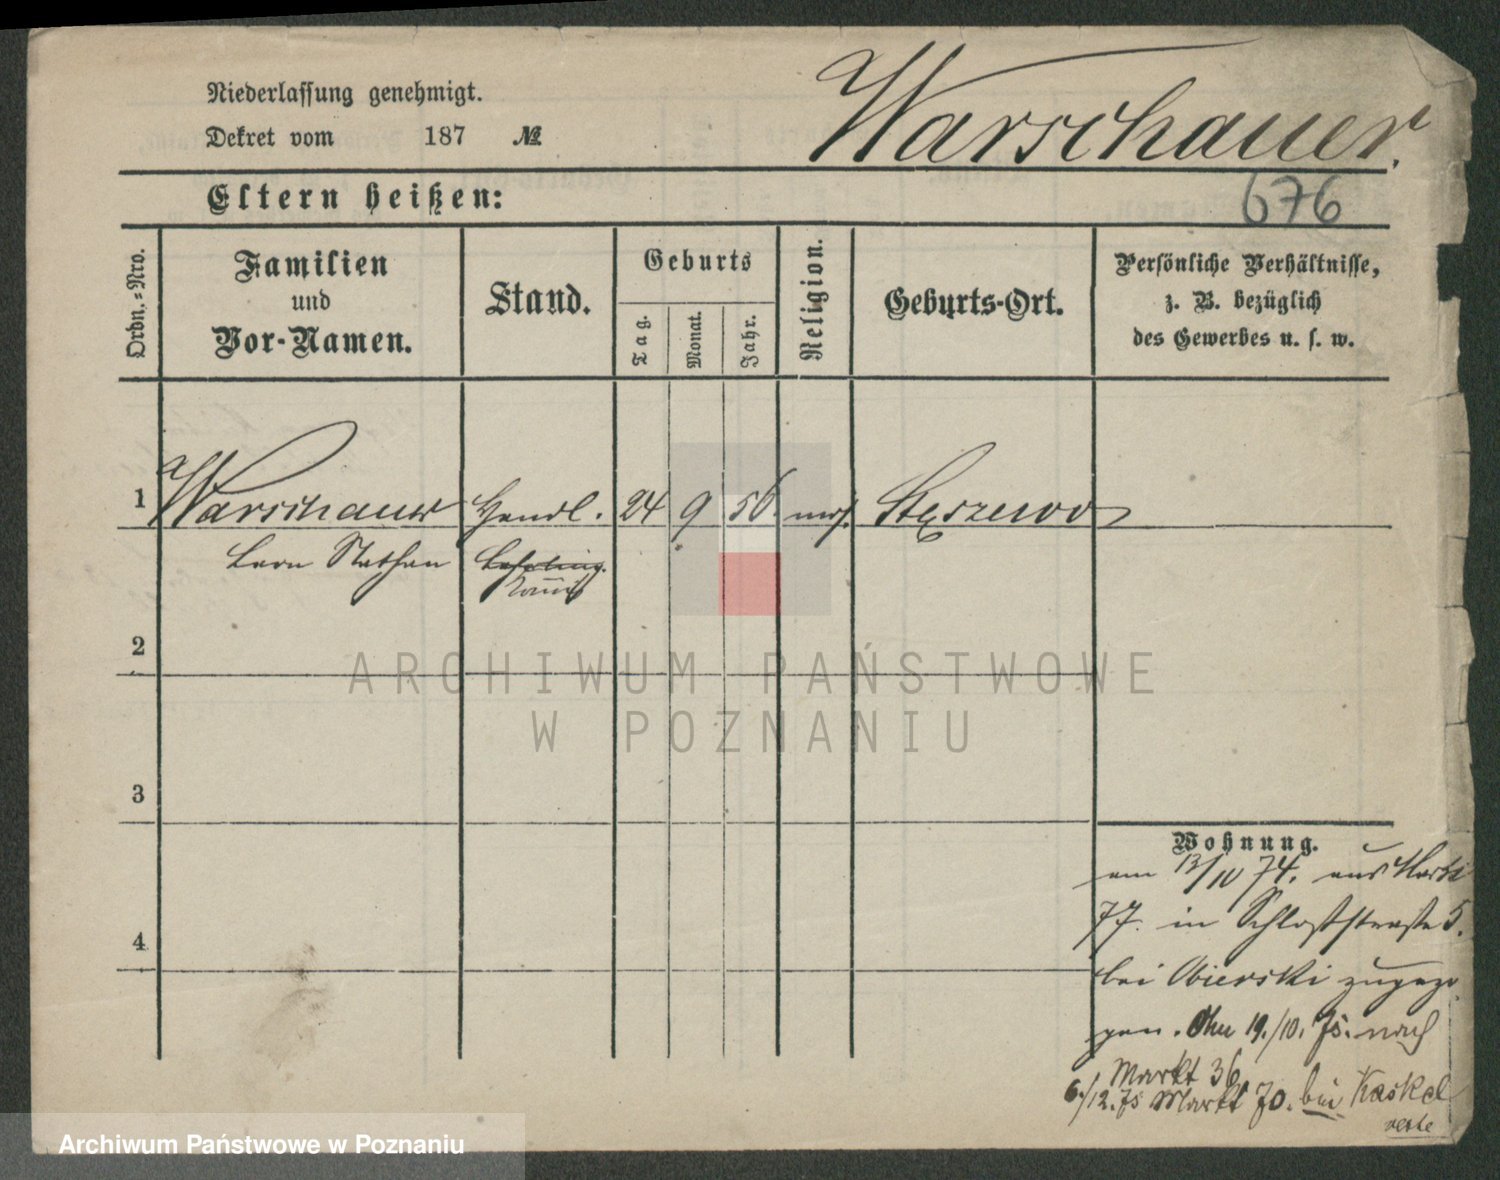 Niederlassung genehmigt.
Dekret vom 187 №
Warschauer.
676
Eltern heißen:
Ordn.=Nro.
Familien
und
Vor-Namen.
Stand.
Geburts
Tag.
Monat.
Jahr.
Religion.
Geburts-Ort.
Persönliche Verhältnisse,
z. B. bezüglich
des Gewerbes u. s. w.
1 Warschauer Handl. 24 9 56. mos. Stęszewo
Leon Nathan Lehrling.
Commis
2
3
4
Wohnung.
am 13/10 74. aus Markt
77. in Schloßstraße 5.
bei Obierski zugezo
gen. Am 19./10. 75. nach
Markt 36
6./12. 75 Markt 70. bei Kaskel
ARCHIWUM PAŃSTWOWE
W POZNANIU
Archiwum Państwowe w Poznaniu